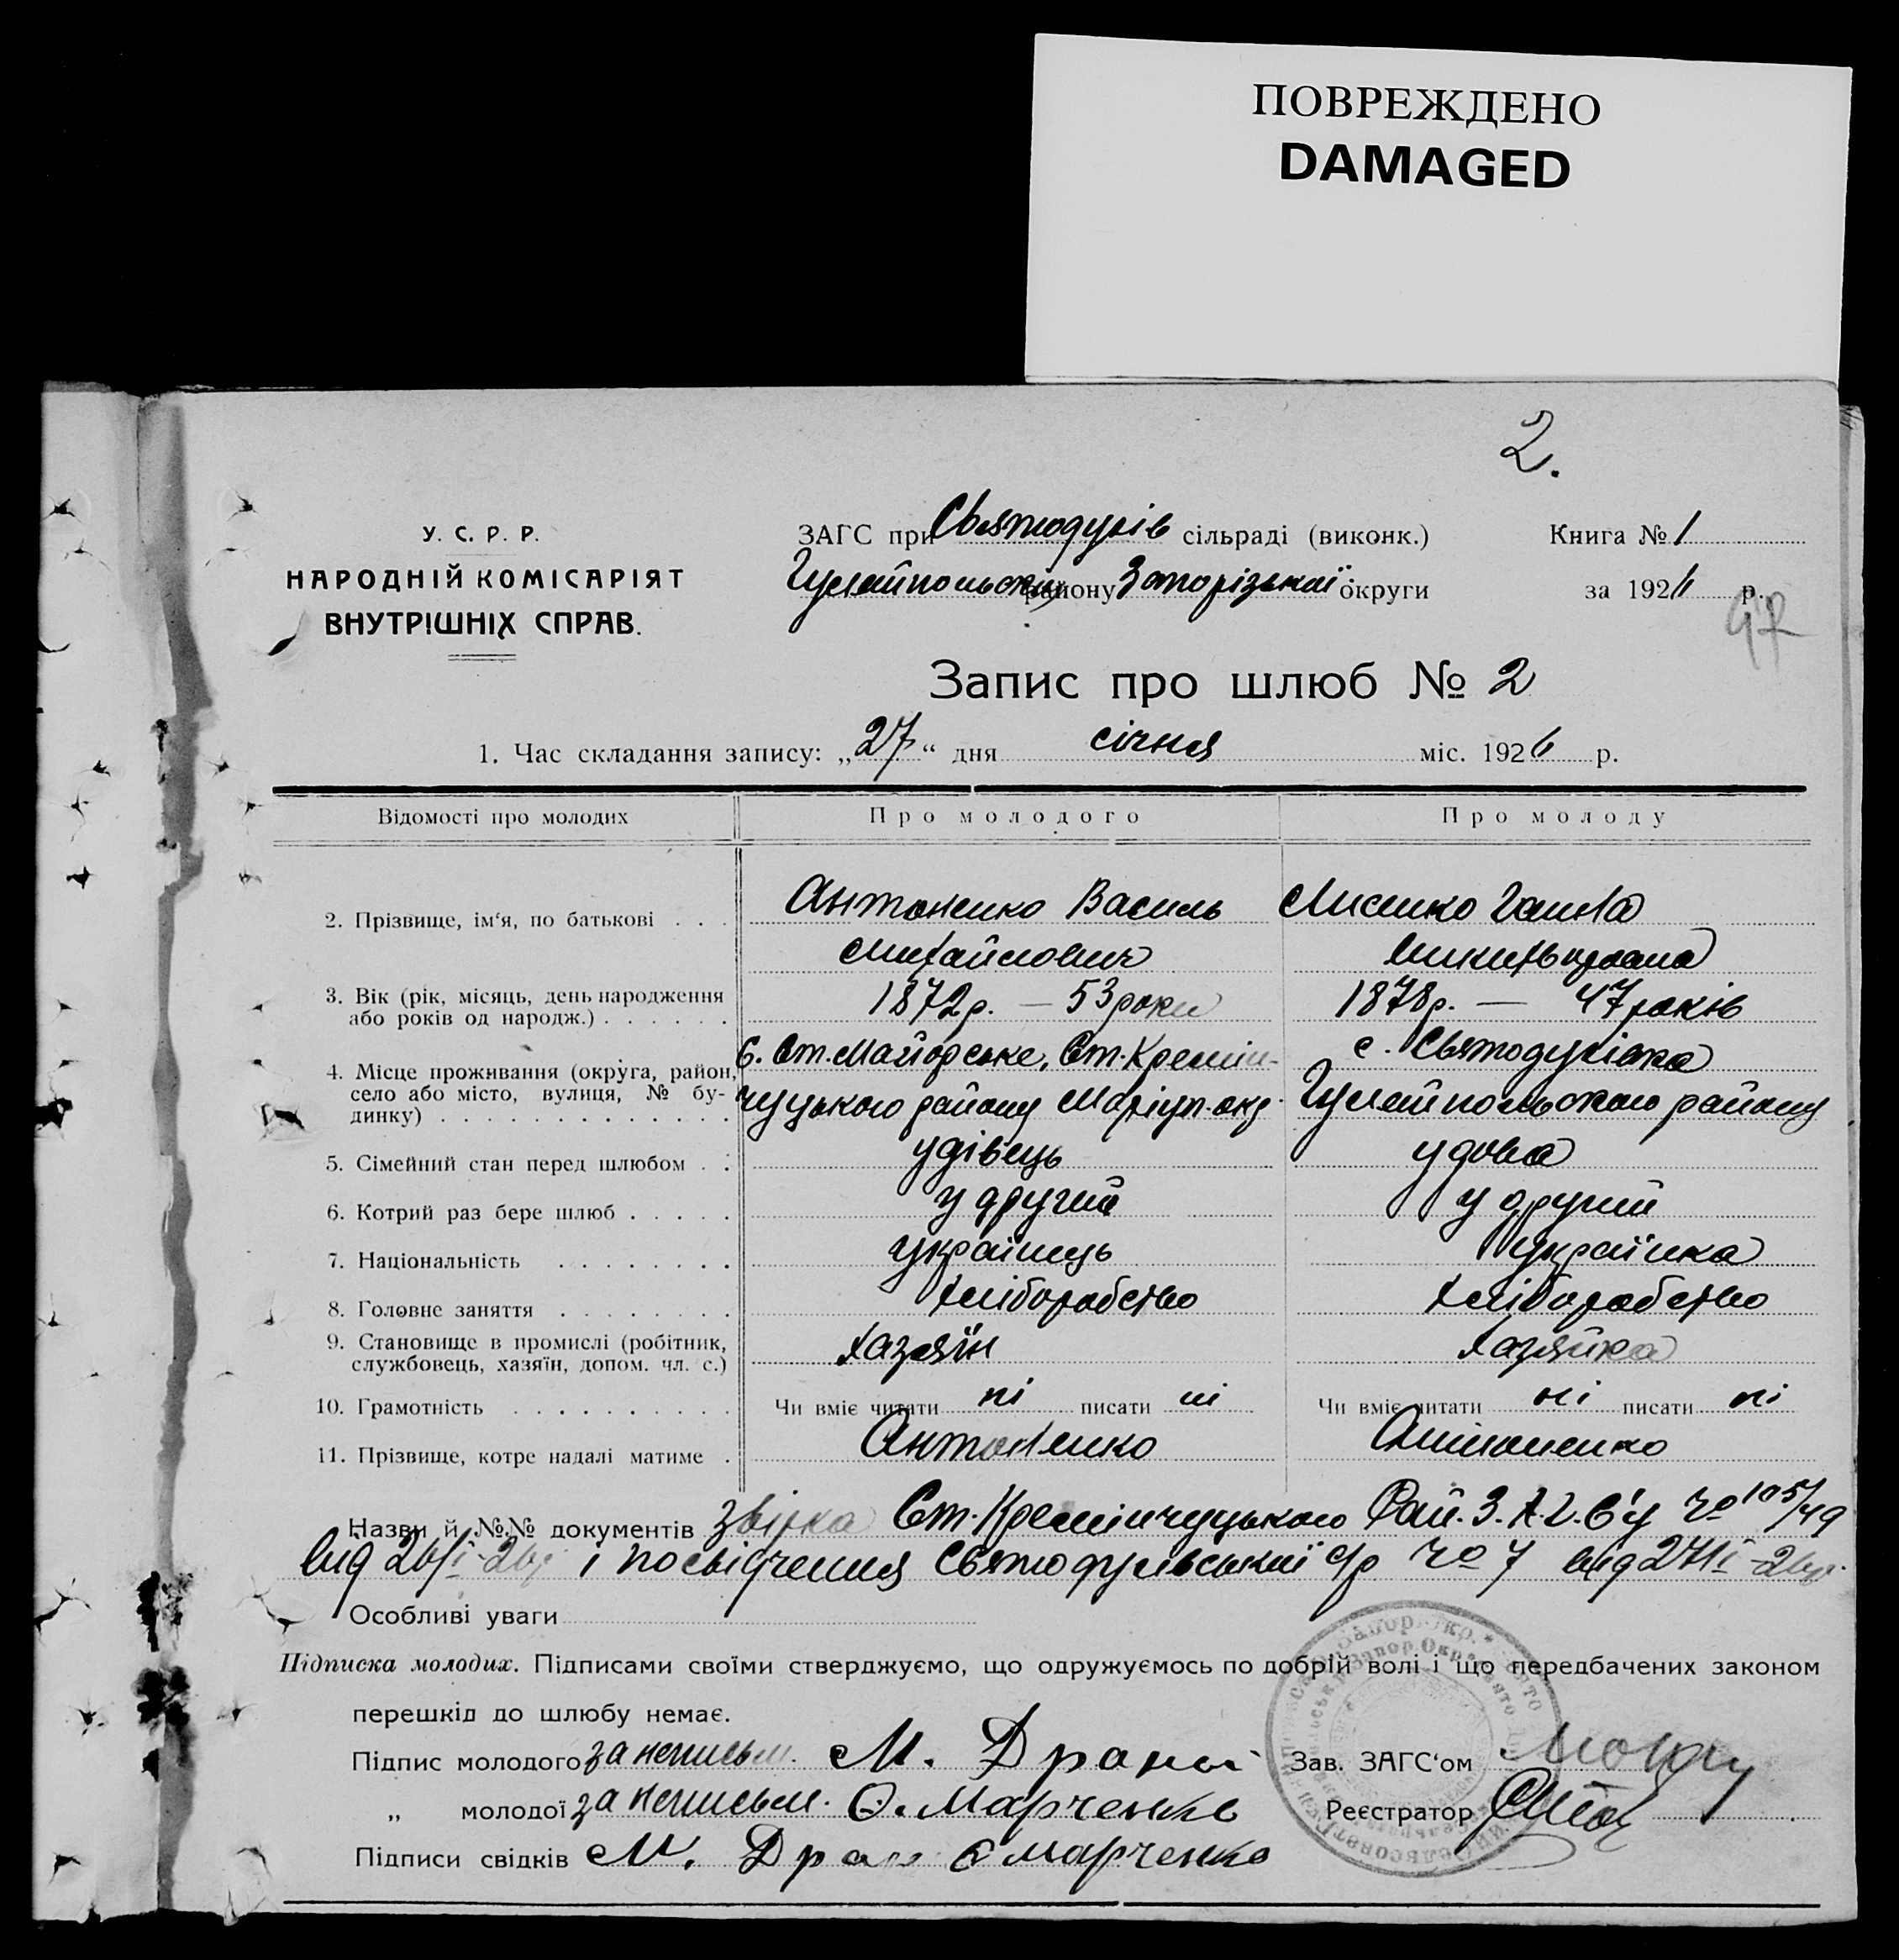 ПОВРЕЖДЕНО
DAMAGED
2.
У. С. Р. Р.
НАРОДНІЙ КОМІСАРІЯТ
ВНУТРІШНІХ СПРАВ.
ЗАГС при Святодухів сільраді (виконк.)
Гуляйпольськ. району Запорізької округи
Книга № 1
за 1926 р.
Запис про шлюб № 2
1. Час складання запису: „27“ дня січня міс. 1926 р.
Відомості про молодих
Про молодого
Про молоду
2. Прізвище, ім‘я, по батькові . . .
Антоненко Василь
Михайлович
Лисенко Ганна
3. Вік (рік, місяць, день народження
або років од народж.) . . . . . .
1872р. — 53 роки
1878р. — 47 років
4. Місце проживання (округа, район,
село або місто, вулиця, № бу-
динку) . . . . . . . . . . . . .
С. Ст. Майорське, Ст. Кремін-
чуцького району Маріуп. окр.
с. Святодухівка
Гуляйпольського району
5. Сімейний стан перед шлюбом . .
удівець
удова
6. Котрий раз бере шлюб . . . . .
у другий
у другий
7. Національність . . . . . . . .
українець
українка
8. Головне заняття . . . . . . . .
хліборобство
хліборобство
9. Становище в промислі (робітник,
службовець, хазяїн, допом. чл. с.)
хазяїн
хазяйка
10. Грамотність . . . . . . . . . .
Чи вміє читати ні писати ні
Чи вміє читати ні писати ні
11. Прізвище, котре надалі матиме .
Антоненко
Антоненко
Назви й №№ документів Ст. Кремінчуцького Рай. З.А.Г.С'у № 105/49
від 26/I-26р і посвідчення Святодухівської с/р № 7 від 27/I-26р.
Особливі уваги
Підписка молодих. Підписами своїми стверджуємо, що одружуємось по добрій волі і що передбачених законом
перешкід до шлюбу немає.
Підпис молодого за неписьм. М.
Зав. ЗАГС‘ом
„ молодої за неписьм. О. Марченко
Реєстратор
Підписи свідків М. Марченко